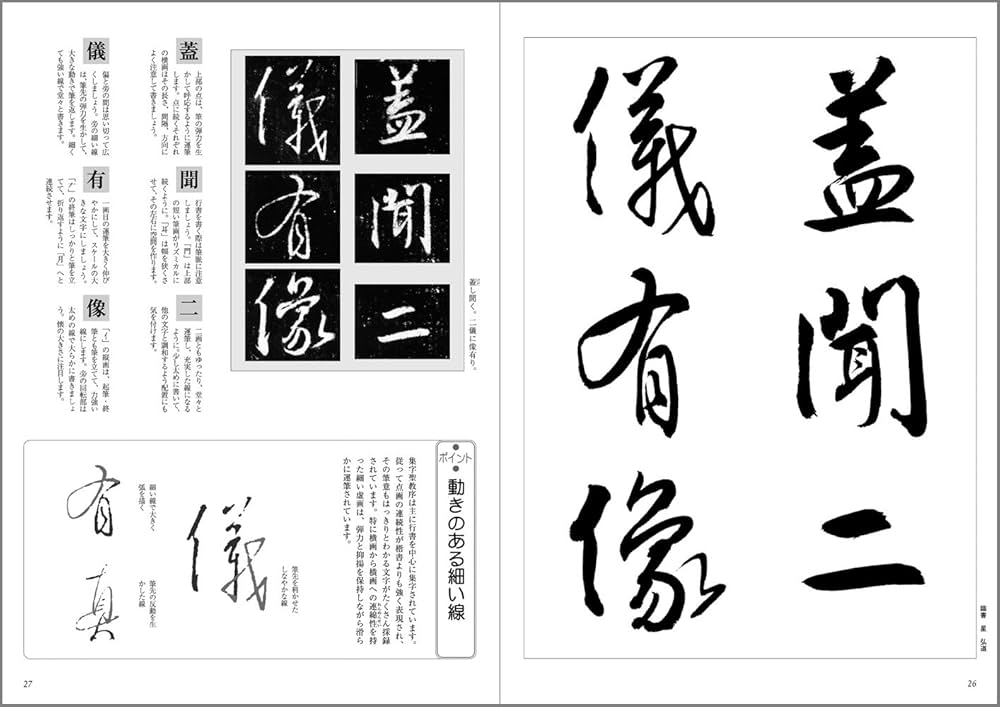 蓋聞二
儀有像
臨書 星 弘道
26
蓋聞二
儀有像
蓋し聞く。二儀に像有り。
蓋
上部の点は、筆の弾力を生
かして呼応するように運筆
します。点に続くそれぞれ
の横画はその長さ、間隔、方向に
よく注意して書きましょう。
儀
偏と旁の間は思い切って広
くしましょう。旁の細い線
は、筆先の弾力を生かして、
大きな動きで筆を返します。細く
ても強い線で堂々と書きます。
聞
行書を書く際は筆脈に注意
しましょう。「門」は上部
の短い筆画がリズミカルに
続くように。「耳」は幅を狭くさ
せて、その左右に空間を作ります。
有
一画目の運筆を大きく伸び
やかにして、スケールの大
きな文字にしましょう。
「𠂇」の終筆はしっかりと筆を立
てて、折り返すように「月」へと
連続させます。
二
二画ともゆったり、堂々と
運筆し、充実した線になる
ように、少し太めに書いて、
他の文字と調和するよう配置にも
気を付けます。
像
「亻」の縦画は、起筆・終
筆とも筆を立てて、力強い
線にします。旁の回転部は
太めの線で大らかに書きましょ
う。懐の大きさに注目します。
ポイント
動きのある細い線
集字聖教序は主に行書を中心に集字されています。
従って点画の連続性が楷書よりも強く表現され、
その筆意もはっきりとわかる文字がたくさん採録
されています。特に横画から横画への連綿性を持
った細い虚画は、弾力と抑揚を保持しながら滑ら
かに運筆されています。
儀
筆先を利かせた
しなやかな線
有
細い線で大きく
弧を描く
真
筆先の反動を生
かした線
27